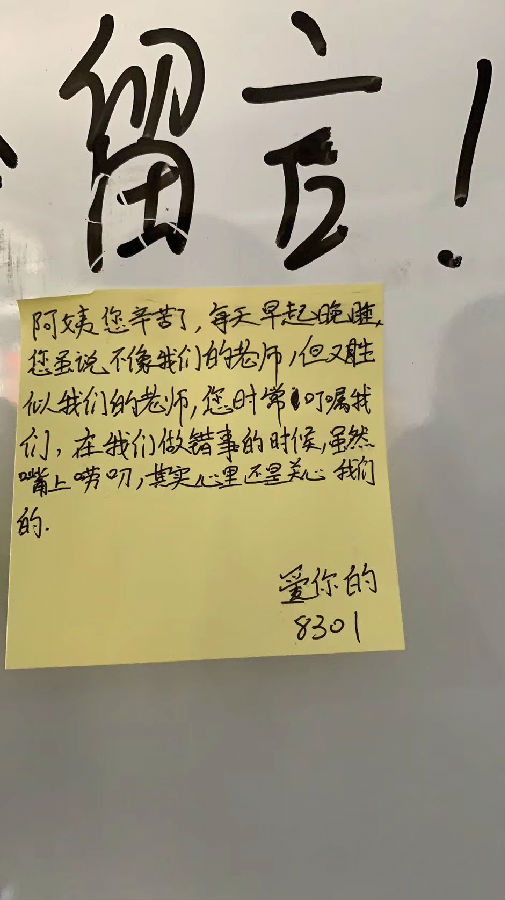 留言！
阿姨您辛苦了，每天早起晚睡，
您虽说不像我们的老师，但又胜
似我们的老师，您时常叮嘱我
们，在我们做错事的时候，虽然
嘴上唠叨，其实心里还是关心我们
的.
爱你的
8301